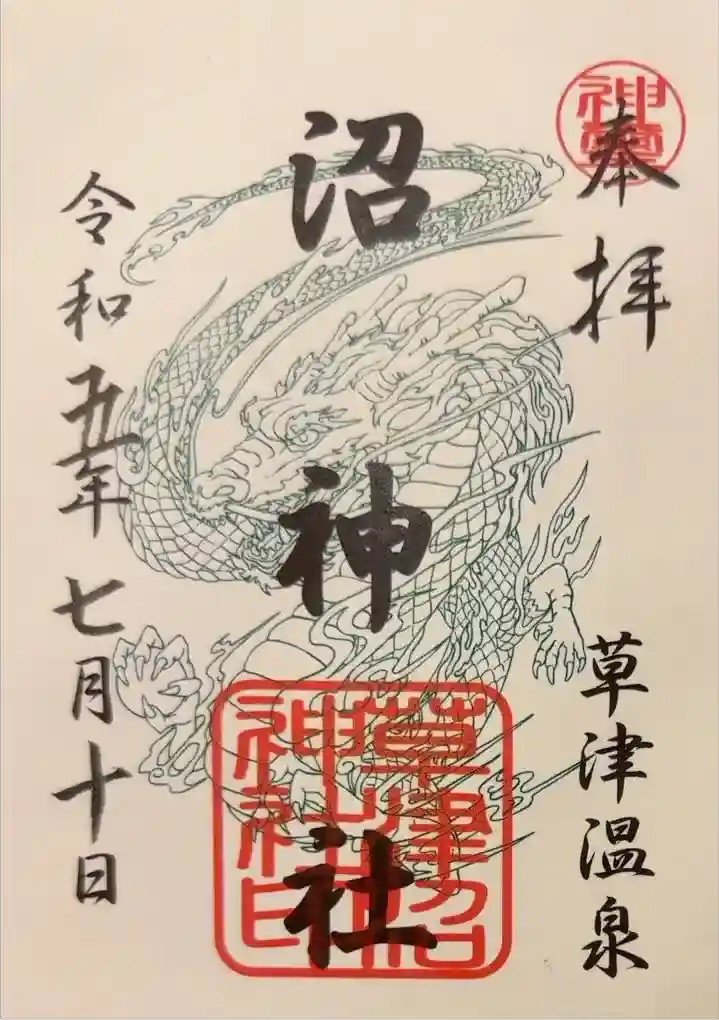 奉拝
草津温泉
沼神社
草津沼
神社印
令和五年七月十日